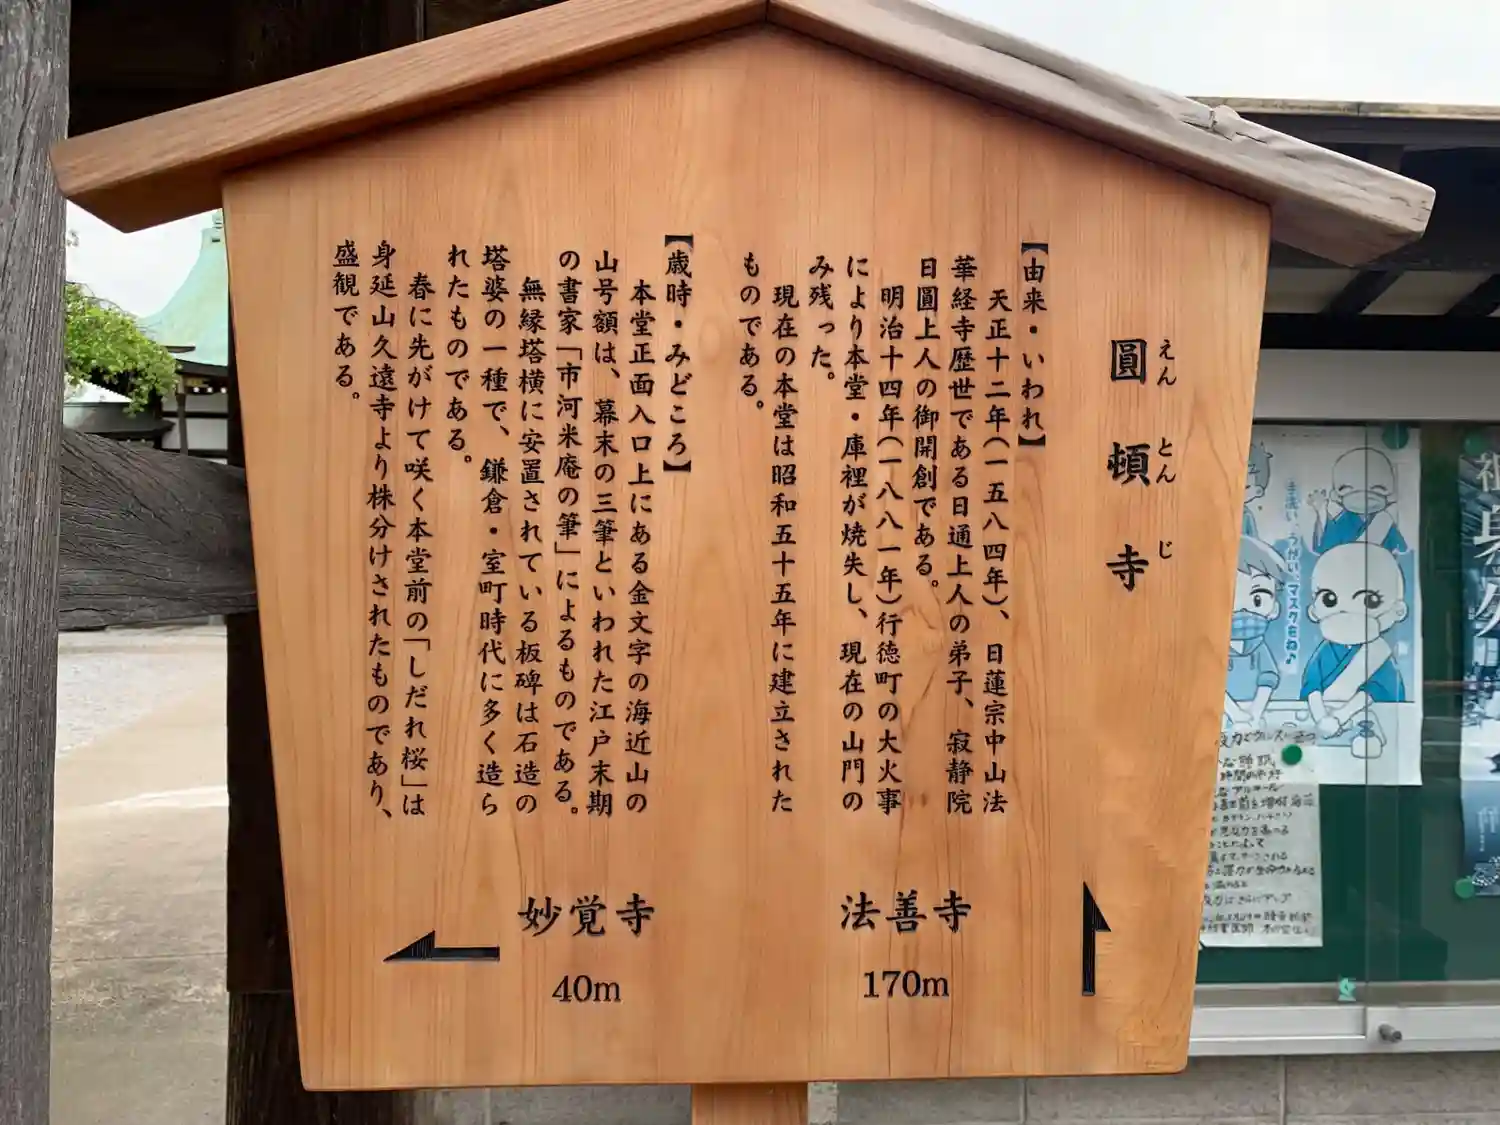 圓頓寺
えん とん じ
【由来・いわれ】
天正十二年(一五八四年)、日蓮宗中山法
華経寺歴世である日通上人の弟子、寂静院
日圓上人の御開創である。
明治十四年(一八八一年)行徳町の大火事
により本堂・庫裡が焼失し、現在の山門の
み残った。
現在の本堂は昭和五十五年に建立された
ものである。
【歳時・みどころ】
本堂正面入口上にある金文字の海近山の
山号額は、幕末の三筆といわれた江戸末期
の書家「市河米庵の筆」によるものである。
無縁塔横に安置されている板碑は石造の
塔婆の一種で、鎌倉・室町時代に多く造ら
れたものである。
春に先がけて咲く本堂前の「しだれ桜」は
身延山久遠寺より株分けされたものであり、
盛観である。
法善寺
170m
妙覚寺
40m
手洗い、うがい、マスクもね♪